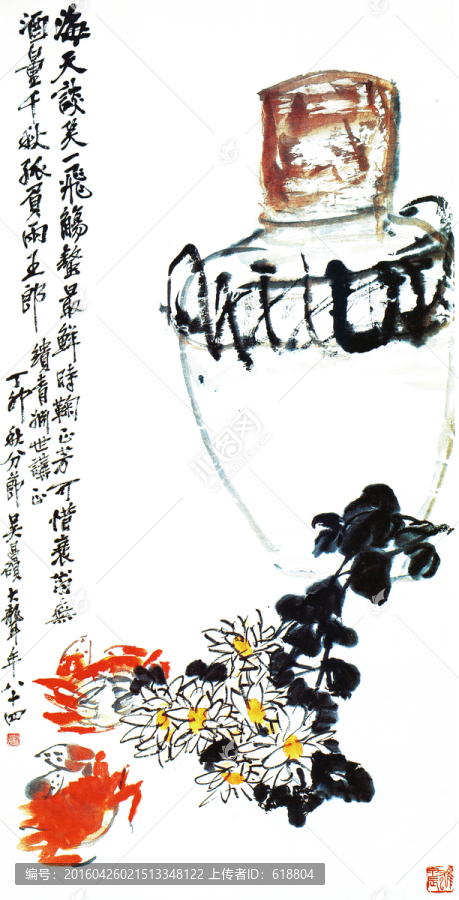 海天談笑一飛觴螯最鮮時鞠正芳可惜衰翁無
酒量千秋孤負兩王郎
續青獮世講正
丁卯秋分節吴昌碩大聾年八十四
编号：20160426021513348122 上传者ID：618804